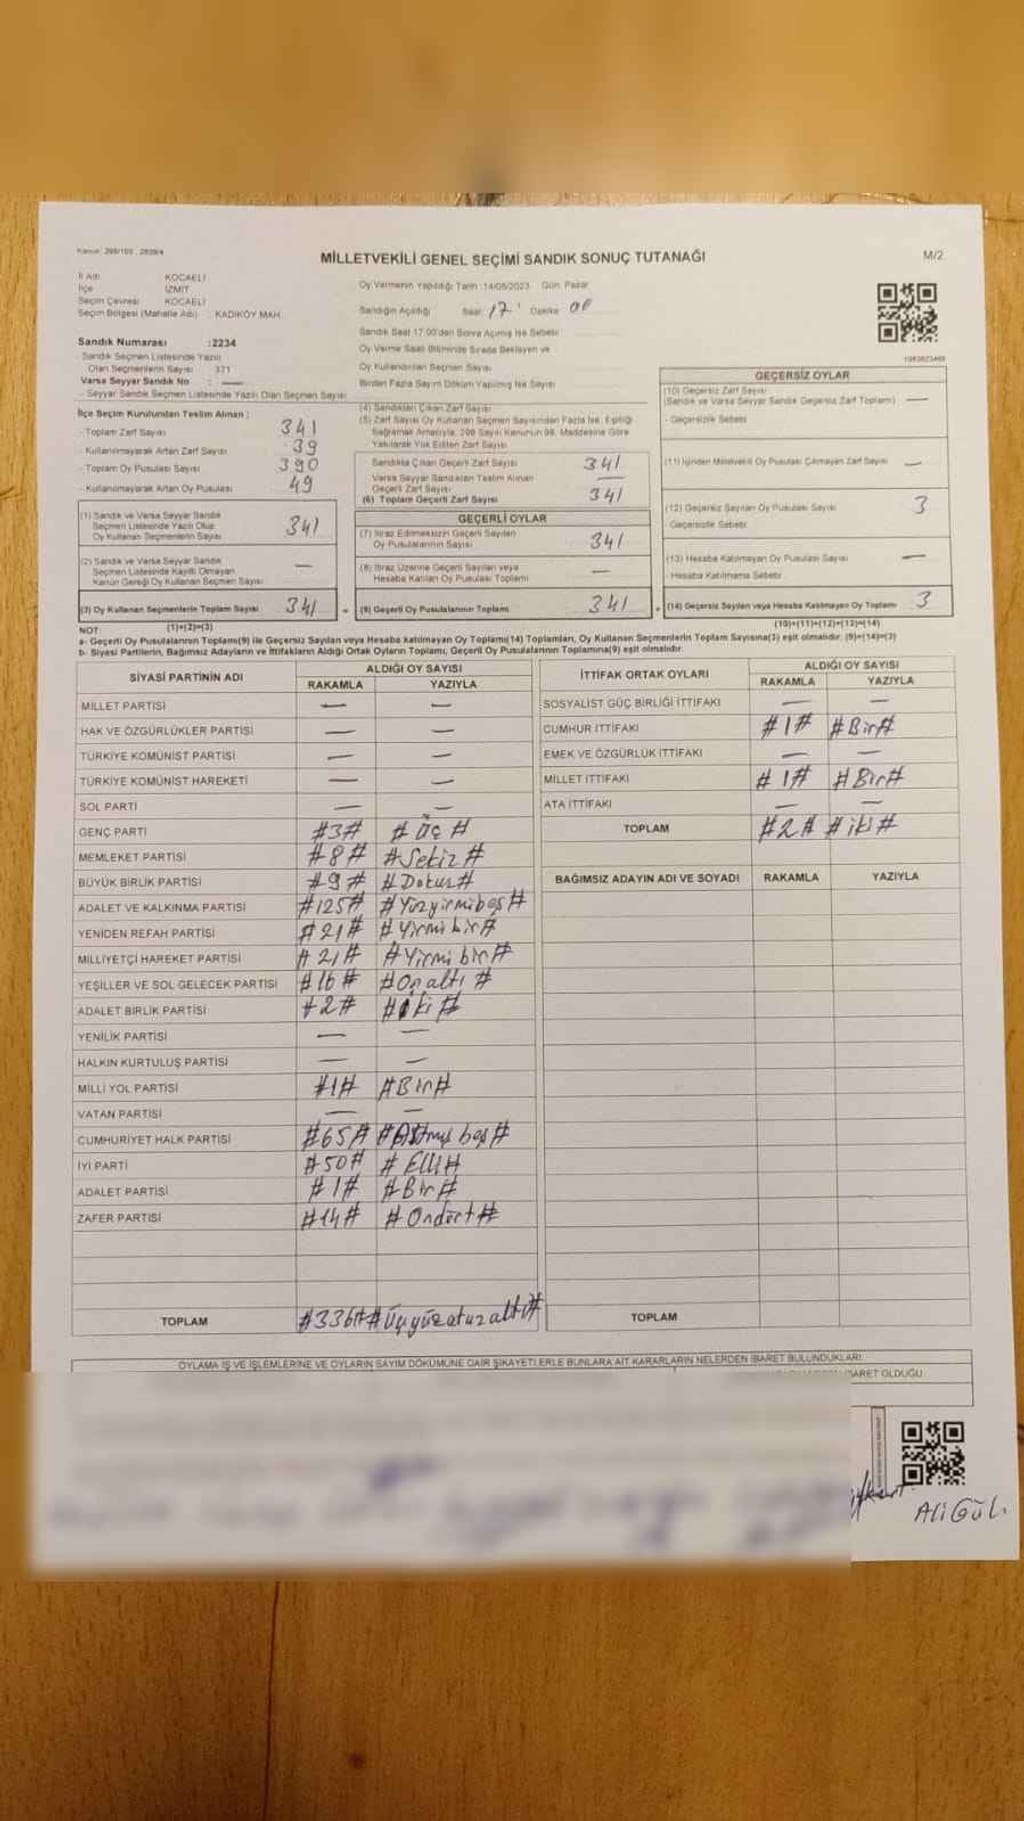 Kanun: 298/105, 2839/4
MİLLETVEKİLİ GENEL SEÇİMİ SANDIK SONUÇ TUTANAĞI
M/2
İl Adı KOCAELİ
İlçe İZMİT
Seçim Çevresi KOCAELİ
Seçim Bölgesi (Mahalle Adı) KADIKÖY MAH.
Sandık Numarası :2234
Sandık Seçmen Listesinde Yazılı
Olan Seçmenlerin Sayısı 371
Varsa Seyyar Sandık No : —
- Seyyar Sandık Seçmen Listesinde Yazılı Olan Seçmen Sayısı
Oy Vermenin Yapıldığı Tarih :14/05/2023 Gün: Pazar
Sandığın Açıldığı Saat 17 Dakika 00
Sandık Saat 17.00'den Sonra Açılmış İse Sebebi
Oy Verme Saati Bitiminde Sırada Bekleyen ve
Oy Kullandırılan Seçmen Sayısı
Birden Fazla Sayım Döküm Yapılmış İse Sayısı
İlçe Seçim Kurulundan Teslim Alınan :
- Toplam Zarf Sayısı 341
- Kullanılmayarak Artan Zarf Sayısı 39
- Toplam Oy Pusulası Sayısı 390
- Kullanılmayarak Artan Oy Pusulası 49
(1) Sandık ve Varsa Seyyar Sandık
Seçmen Listesinde Yazılı Olup
Oy Kullanan Seçmenlerin Sayısı 341
(2) Sandık ve Varsa Seyyar Sandık
Seçmen Listesinde Kayıtlı Olmayan
Kanun Gereği Oy Kullanan Seçmen Sayısı —
(3) Oy Kullanan Seçmenlerin Toplam Sayısı 341
(1)+(2)=(3)
(4) Sandıktan Çıkan Zarf Sayısı
(5) Zarf Sayısı Oy Kullanan Seçmen Sayısından Fazla İse, Eşitliği
Sağlamak Amacıyla, 298 Sayılı Kanunun 98. Maddesine Göre
Yakılarak Yok Edilen Zarf Sayısı
Sandıkta Çıkan Geçerli Zarf Sayısı 341
Varsa Seyyar Sandıktan Teslim Alınan
Geçerli Zarf Sayısı —
(6) Toplam Geçerli Zarf Sayısı 341
GEÇERLİ OYLAR
(7) İtiraz Edilmeksizin Geçerli Sayılan
Oy Pusulalarının Sayısı 341
(8) İtiraz Üzerine Geçerli Sayılan veya
Hesaba Katılan Oy Pusulası Toplamı —
(9) Geçerli Oy Pusulalarının Toplamı 341
GEÇERSİZ OYLAR
(10) Geçersiz Zarf Sayısı
(Sandık ve Varsa Seyyar Sandık Geçersiz Zarf Toplamı) —
- Geçersizlik Sebebi
(11) İçinden Milletvekili Oy Pusulası Çıkmayan Zarf Sayısı —
(12) Geçersiz Sayılan Oy Pusulası Sayısı 3
- Geçersizlik Sebebi
(13) Hesaba Katılmayan Oy Pusulası Sayısı —
- Hesaba Katılmama Sebebi
(14) Geçersiz Sayılan veya Hesaba Katılmayan Oy Toplamı 3
(10)+(11)+(12)+(13)=(14)
NOT:
a- Geçerli Oy Pusulalarının Toplamı(9) ile Geçersiz Sayılan veya Hesaba katılmayan Oy Toplamı(14) Toplamları, Oy Kullanan Seçmenlerin Toplam Sayısına(3) eşit olmalıdır. (9)+(14)=(3)
b- Siyasi Partilerin, Bağımsız Adayların ve İttifakların Aldığı Ortak Oyların Toplamı, Geçerli Oy Pusulalarının Toplamına(9) eşit olmalıdır.
SİYASİ PARTİNİN ADI ALDIĞI OY SAYISI
RAKAMLA YAZIYLA
MİLLET PARTİSİ — —
HAK VE ÖZGÜRLÜKLER PARTİSİ — —
TÜRKİYE KOMÜNİST PARTİSİ — —
TÜRKİYE KOMÜNİST HAREKETİ — —
SOL PARTİ — —
GENÇ PARTİ #3# #Üç#
MEMLEKET PARTİSİ #8# #Sekiz#
BÜYÜK BİRLİK PARTİSİ #9# #Dokuz#
ADALET VE KALKINMA PARTİSİ #125# #Yüzyirmibeş#
YENİDEN REFAH PARTİSİ #21# #Yirmi bir#
MİLLİYETÇİ HAREKET PARTİSİ #21# #Yirmi bir#
YEŞİLLER VE SOL GELECEK PARTİSİ #16# #On altı#
ADALET BİRLİK PARTİSİ #2# #iki#
YENİLİK PARTİSİ — —
HALKIN KURTULUŞ PARTİSİ — —
MİLLİ YOL PARTİSİ #1# #Bir#
VATAN PARTİSİ — —
CUMHURİYET HALK PARTİSİ #65# #Altmış beş#
İYİ PARTİ #50# #Elli#
ADALET PARTİSİ #1# #Bir#
ZAFER PARTİSİ #14# #Ondört#
TOPLAM #336# #Üçyüzotuzaltı#
İTTİFAK ORTAK OYLARI ALDIĞI OY SAYISI
RAKAMLA YAZIYLA
SOSYALİST GÜÇ BİRLİĞİ İTTİFAKI — —
CUMHUR İTTİFAKI #1# #Bir#
EMEK VE ÖZGÜRLÜK İTTİFAKI — —
MİLLET İTTİFAKI #1# #Bir#
ATA İTTİFAKI — —
TOPLAM #2# #iki#
BAĞIMSIZ ADAYIN ADI VE SOYADI RAKAMLA YAZIYLA
TOPLAM
OYLAMA İŞ VE İŞLEMLERİNE VE OYLARIN SAYIM DÖKÜMÜNE DAİR ŞİKAYETLERLE BUNLARA AİT KARARLARIN NELERDEN İBARET BULUNDUKLARI
İBARET OLDUĞU
Ali Gül